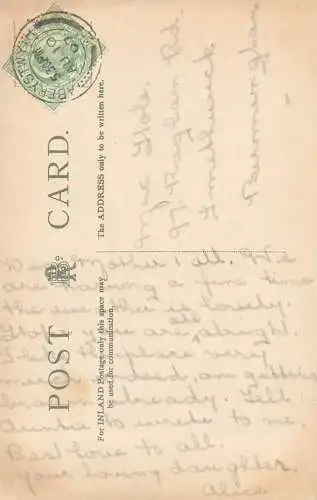 POST CARD.
For INLAND Postage only this space may
be used for communication.
The ADDRESS only to be written here.
ABERYSTWYTH
Raglan Rd.
Smethwick
Birmingham
Dear Mother & all. We
are having a fine time
the weather is lovely.
you are alright.
place very
indeed, am getting
already. Tell
Auntie to write to me.
Best love to all.
Your loving daughter.
Alice